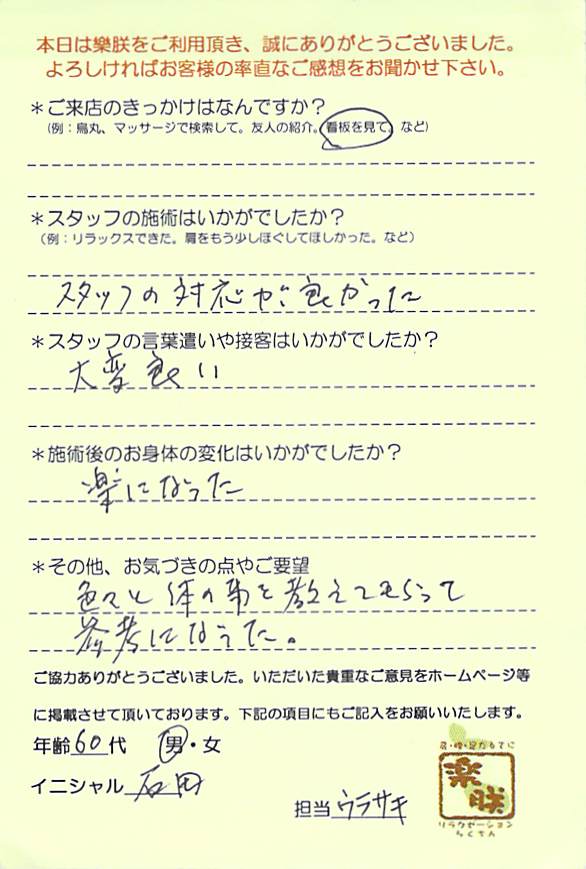 本日は樂朕をご利用頂き、誠にありがとうございました。
よろしければお客様の率直なご感想をお聞かせ下さい。
＊ご来店のきっかけはなんですか？
(例：烏丸、マッサージで検索して。友人の紹介。看板を見て。など)
＊スタッフの施術はいかがでしたか？
(例：リラックスできた。肩をもう少しほぐしてほしかった。など)
スタッフの対応が良かった
＊スタッフの言葉遣いや接客はいかがでしたか？
大変良い
＊施術後のお身体の変化はいかがでしたか？
楽になった
＊その他、お気づきの点やご要望
色々と体の事を教えてもらって
参考になった。
ご協力ありがとうございました。いただいた貴重なご意見をホームページ等
に掲載させて頂いております。下記の項目にもご記入をお願いいたします。
年齢60代 男・女
イニシャル 石田
担当 ウラサキ
楽朕
リラクゼーション
らくちん